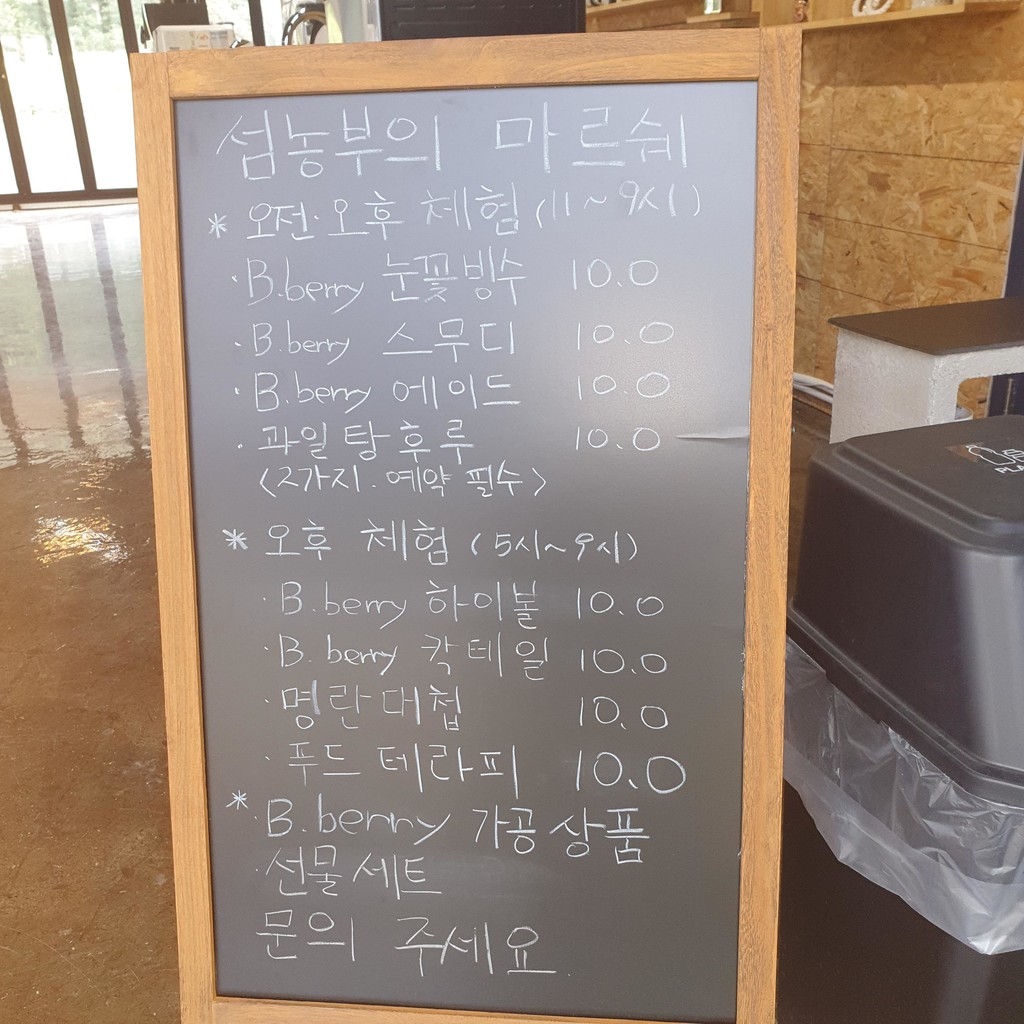 섬농부의 마르쉐
* 오전·오후 체험 (11~9시)
· B.berry 눈꽃빙수 10.0
· B.berry 스무디 10.0
· B.berry 에이드 10.0
· 과일탕후루 10.0
<2가지. 예약 필수>
* 오후 체험 (5시~9시)
· B.berry 하이볼 10.0
· B.berry 칵테일 10.0
· 명란대첩 10.0
· 푸드 테라피 10.0
* B.berry 가공상품
· 선물세트
문의 주세요.